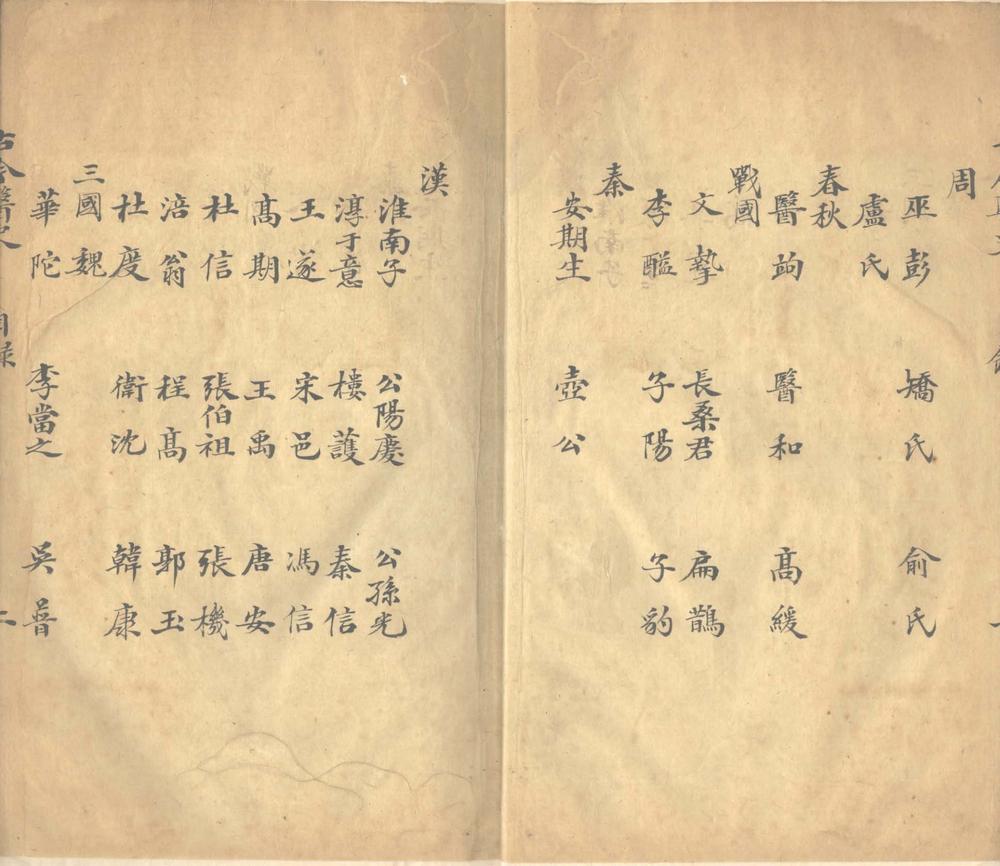 周
巫彭 矯氏 俞氏
盧氏
春秋
醫竘 醫和 高緩
戰國
文摯 長桑君 扁鵲
李醯 子陽 子豹
秦
安期生 壺公
漢
淮南子 公陽慶 公孫光
淳于意 樓護 秦信
王遂 宋邑 馮信
高期 王禹 唐安
杜信 張伯祖 張機
涪翁 程高 郭玉
杜度 衛沈 韓康
三國魏
華陀 李當之 吳普
古今醫史 目錄 二